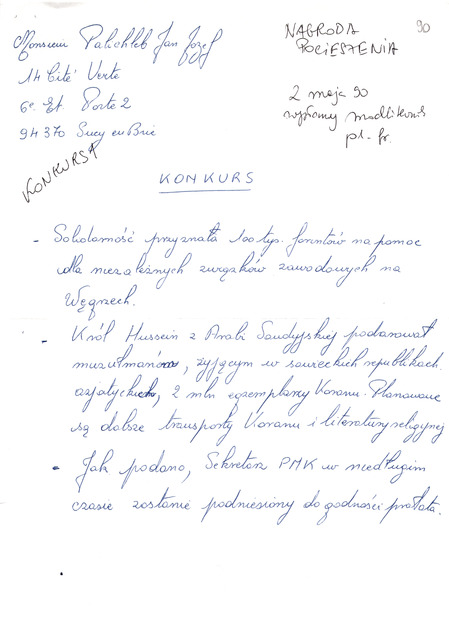 Monsieur Palichleb Jan Jozef
14 Cité Verte
6e. Et Porte 2
94370 Sucy en Brie
NAGRODA
POCIESZENIA
90
2 maja 90
wysłany modlitewnik
pl-fr.
KONKURSY
KONKURS
- Solidarność przyznała 100 tys. forintów na pomoc
dla niezależnych związków zawodowych na
Węgrzech.
- Król Hussein z Arabi Saudyjskiej podarował
muzułmanom, żyjącym w sowieckich republikach
azjatyckich, 2 mln egzemplarzy Koranu. Planowane
są dalsze transporty Koranu i literatury religijnej
- Jak podano, Sekretarz PMK w niedługim
czasie zostanie podniesiony do godności prałata.